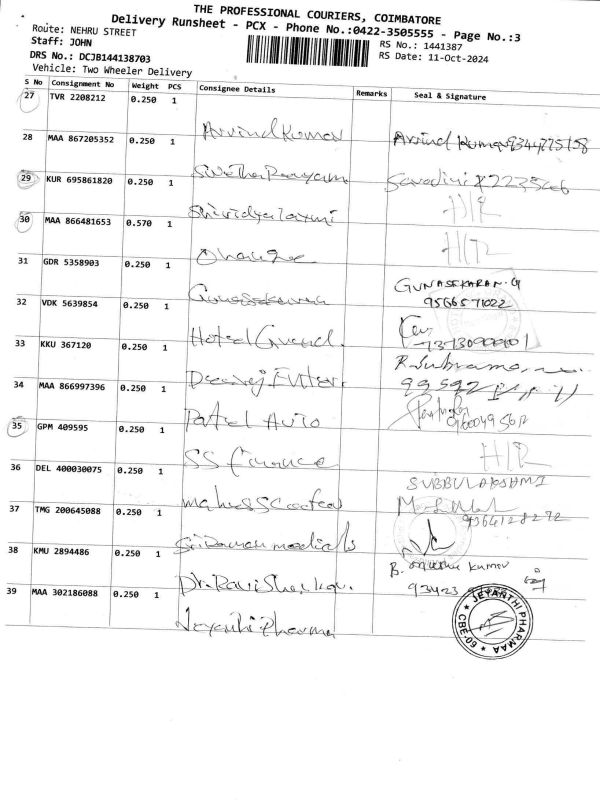 THE PROFESSIONAL COURIERS, COIMBATORE
Delivery Runsheet - PCX - Phone No.:0422-3505555 - Page No.:3
Route: NEHRU STREET
RS No.: 1441387
Staff: JOHN
RS Date: 11-Oct-2024
DRS No.: DCJB144138703
Vehicle: Two Wheeler Delivery
S No Consignment No Weight PCS Consignee Details Remarks Seal & Signature
27 TVR 2208212 0.250 1
Arvind Kumar Arvind Kumar
28 MAA 867205352 0.250 1
29 KUR 695861820 0.250 1
Shrividyalaxmi H/R
30 MAA 866481653 0.570 1
H/R
31 GDR 5358903 0.250 1
GUNASEKARAN.G
9566571022
32 VDK 5639854 0.250 1
Hotel
33 KKU 367120 0.250 1
34 MAA 866997396 0.250 1
Patel Auto
35 GPM 409595 0.250 1
SS Finance H/R
36 DEL 400030075 0.250 1
SUBBULAKSHMI
37 TMG 200645088 0.250 1
9364128272
Sri Raman medicals
38 KMU 2894486 0.250 1
B. Kumar
Dr. Ravi Shankar.
39 MAA 302186088 0.250 1
Jeyanthi Pharma
JEYANTHI PHARMAA
CBE-09